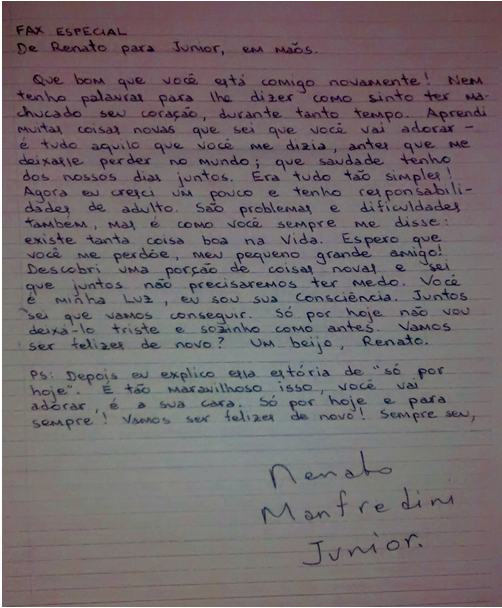 FAX ESPECIAL
De Renato para Junior, em mãos.
Que bom que você está comigo novamente! Nem
tenho palavras para lhe dizer como sinto ter ma-
chucado seu coração, durante tanto tempo. Aprendi
muitas coisas novas que sei que você vai adorar -
é tudo aquilo que você me dizia, antes que me
deixasse perder no mundo; que saudade tenho
dos nossos dias juntos. Era tudo tão simples!
Agora eu cresci um pouco e tenho responsabili-
dades de adulto. São problemas e dificuldades
também, mas é como você sempre me disse:
existe tanta coisa boa na Vida. Espero que
você me perdôe, meu pequeno grande amigo!
Descobri uma porção de coisas novas e sei
que juntos não precisaremos ter medo. Você
é minha Luz, eu sou sua Consciência. Juntos
sei que vamos conseguir. Só por hoje não vou
deixá-lo triste e sozinho como antes. Vamos
ser felizes de novo? Um beijo, Renato.
PS: Depois eu explico essa estória de "só por
hoje". É tão maravilhoso isso, você vai
adorar, é a sua cara. Só por hoje e para
sempre! Vamos ser felizes de novo! Sempre seu,
Renato
Manfredini
Junior.